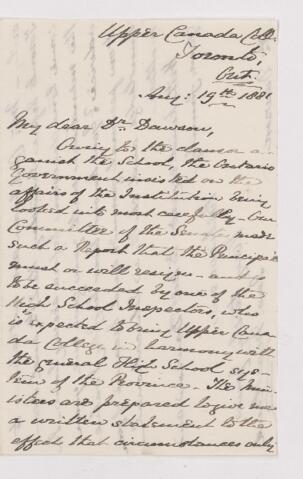 Upper Canada Coll.
Toronto,
Ont.
Aug: 19th 1881
My dear Dr. Dawson,
Owing to the clamor a-
gainst the School, the Ontario
Government insisted on the
affairs of the Institution being
looked into most carefully - Our
Committee of the Senate made
such a Report that the Principal
must or will resign - and is
to be succeeded by one of the
High School Inspectors, who
is expected to bring Upper Cana-
da College in harmony with
the general High School sys-
tem of the Province. The Min-
isters are prepared to give me
a written statement to the
effect that circumstances only